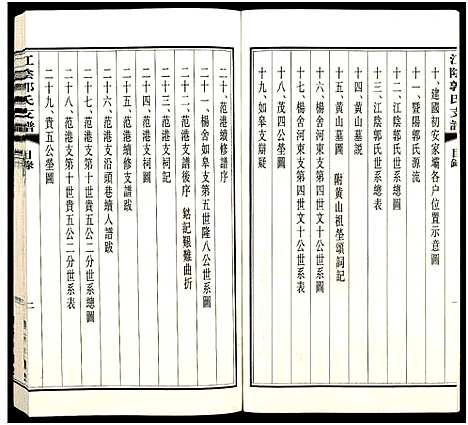 江陰郭氏支譜
目錄
十、建國初安家壩各户位置示意圖
十一、暨陽郭氏源流
十二、江陰郭氏世系總圖
十三、江陰郭氏世系表
十四、黄山墓説
十五、黄山墓圖　附黄山祖塋頌詞記
十六、楊舍河東支第四世文十公世系圖
十七、楊舍河東支第四世文十公世系表
十八、茂四公塋圖
十九、如皋支辯疑
二十、范港續修譜序
二十一、楊舍如皋支第五世隆八公世系圖
二十二、范港支譜後序　銘記艱難曲折
二十三、范港續修支譜跋
二十四、范港支祠記
二十五、范港支祠圖
二十六、范港支沿頭巷續人譜跋
二十七、范港支第十世貴五公二分世系總圖
二十八、范港支第十世貴五公二分世系表
二十九、貴五公塋圖
江陰郭氏支譜
目錄
二